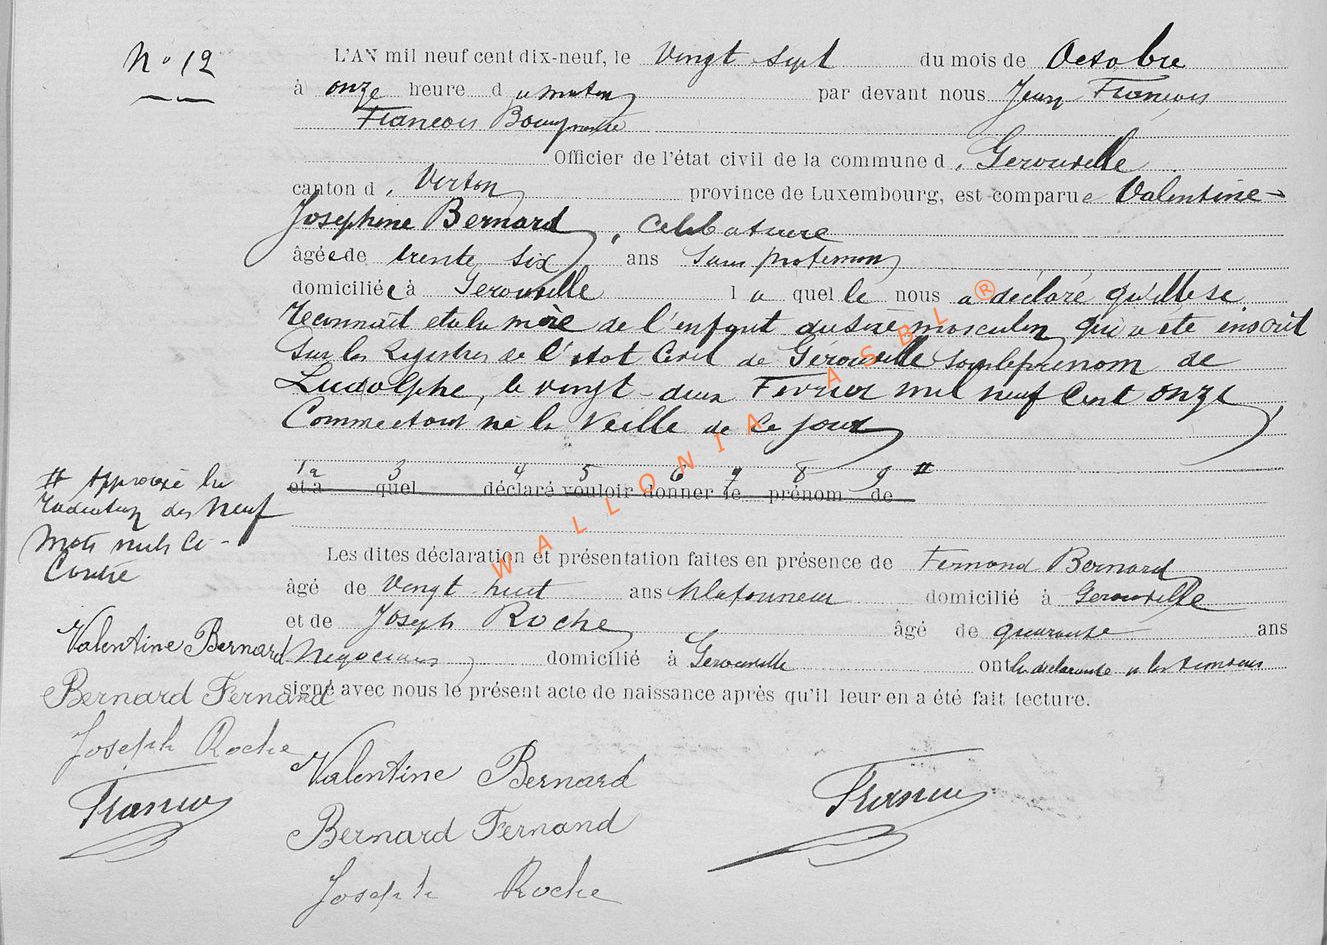 N° 12
L'AN mil neuf cent dix-neuf, le vingt sept du mois de Octobre
à onze heure du matin par devant nous Jean François
François Bourgmestre
Officier de l'état civil de la commune d, Gérouville
canton d, Virton province de Luxembourg, est comparue Valentine
Joséphine Bernard, Célibataire
âgée de trente six ans Sans profession
domiciliée à Gérouville laquelle nous a déclaré qu'elle se
reconnait etre la mère de l'enfant du sexe masculin qui a été inscrit
sur les registres de l'état Civil de Gérouville sous le prénom de
Ludolphe, le vingt deux Fevrier mil neuf Cent onze
Comme étant né la Veille de Ce jour
1 2 3 4 5 6 7 8 9 #
et à quel déclaré vouloir donner le prénom de
# Approuvé la
radiation des Neuf
Mots nuls Ci-
Contre
Les dites déclaration et présentation faites en présence de Fernand Bernard
âgé de Vingt huit ans plafonneur domicilié à Gerouville
et de Joseph Roche âgé de quarante ans
Négociant domicilié à Gerouville ont la déclarante et les témoins
signé avec nous le présent acte de naissance après qu'il leur en a été fait lecture.
Valentine Bernard
Bernard Fernand
Joseph Roche
François
Valentine Bernard
Bernard Fernand
Joseph Roche
François
WALLONIA ASBL ®